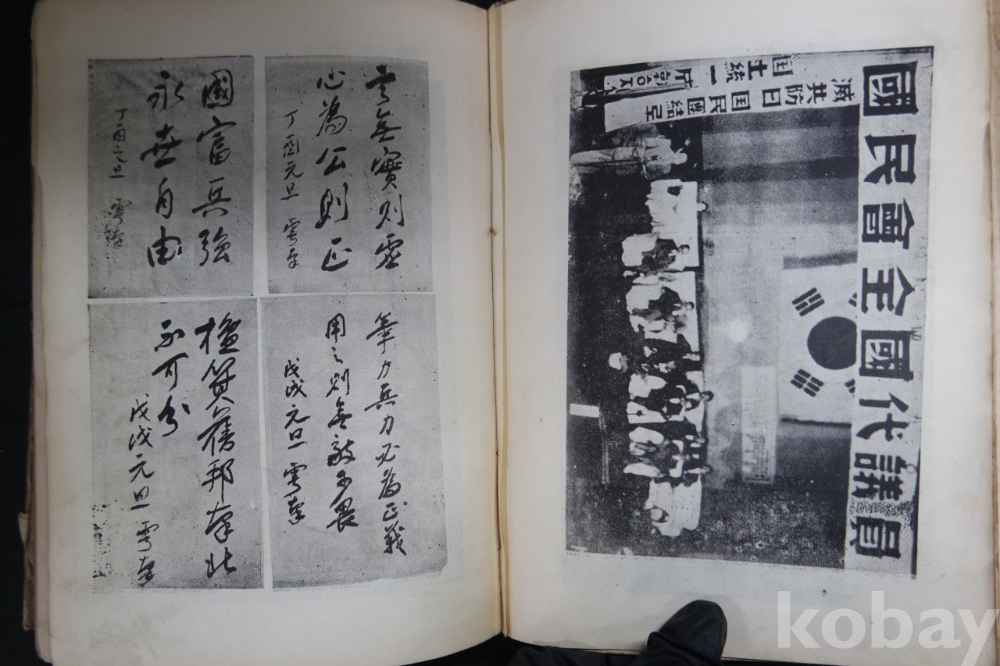 言無實則虛
心為公則正
丁酉元旦 雩南
國富兵強
永世自由
丁酉元旦 雩南
筆力兵力必為正義
用之則無敵不畏
戊戌元旦 雩南
檀箕舊邦南北
不可分
戊戌元旦 雩南
國民會全國代議員
国土統一
滅共防日 国民團結로
kobay